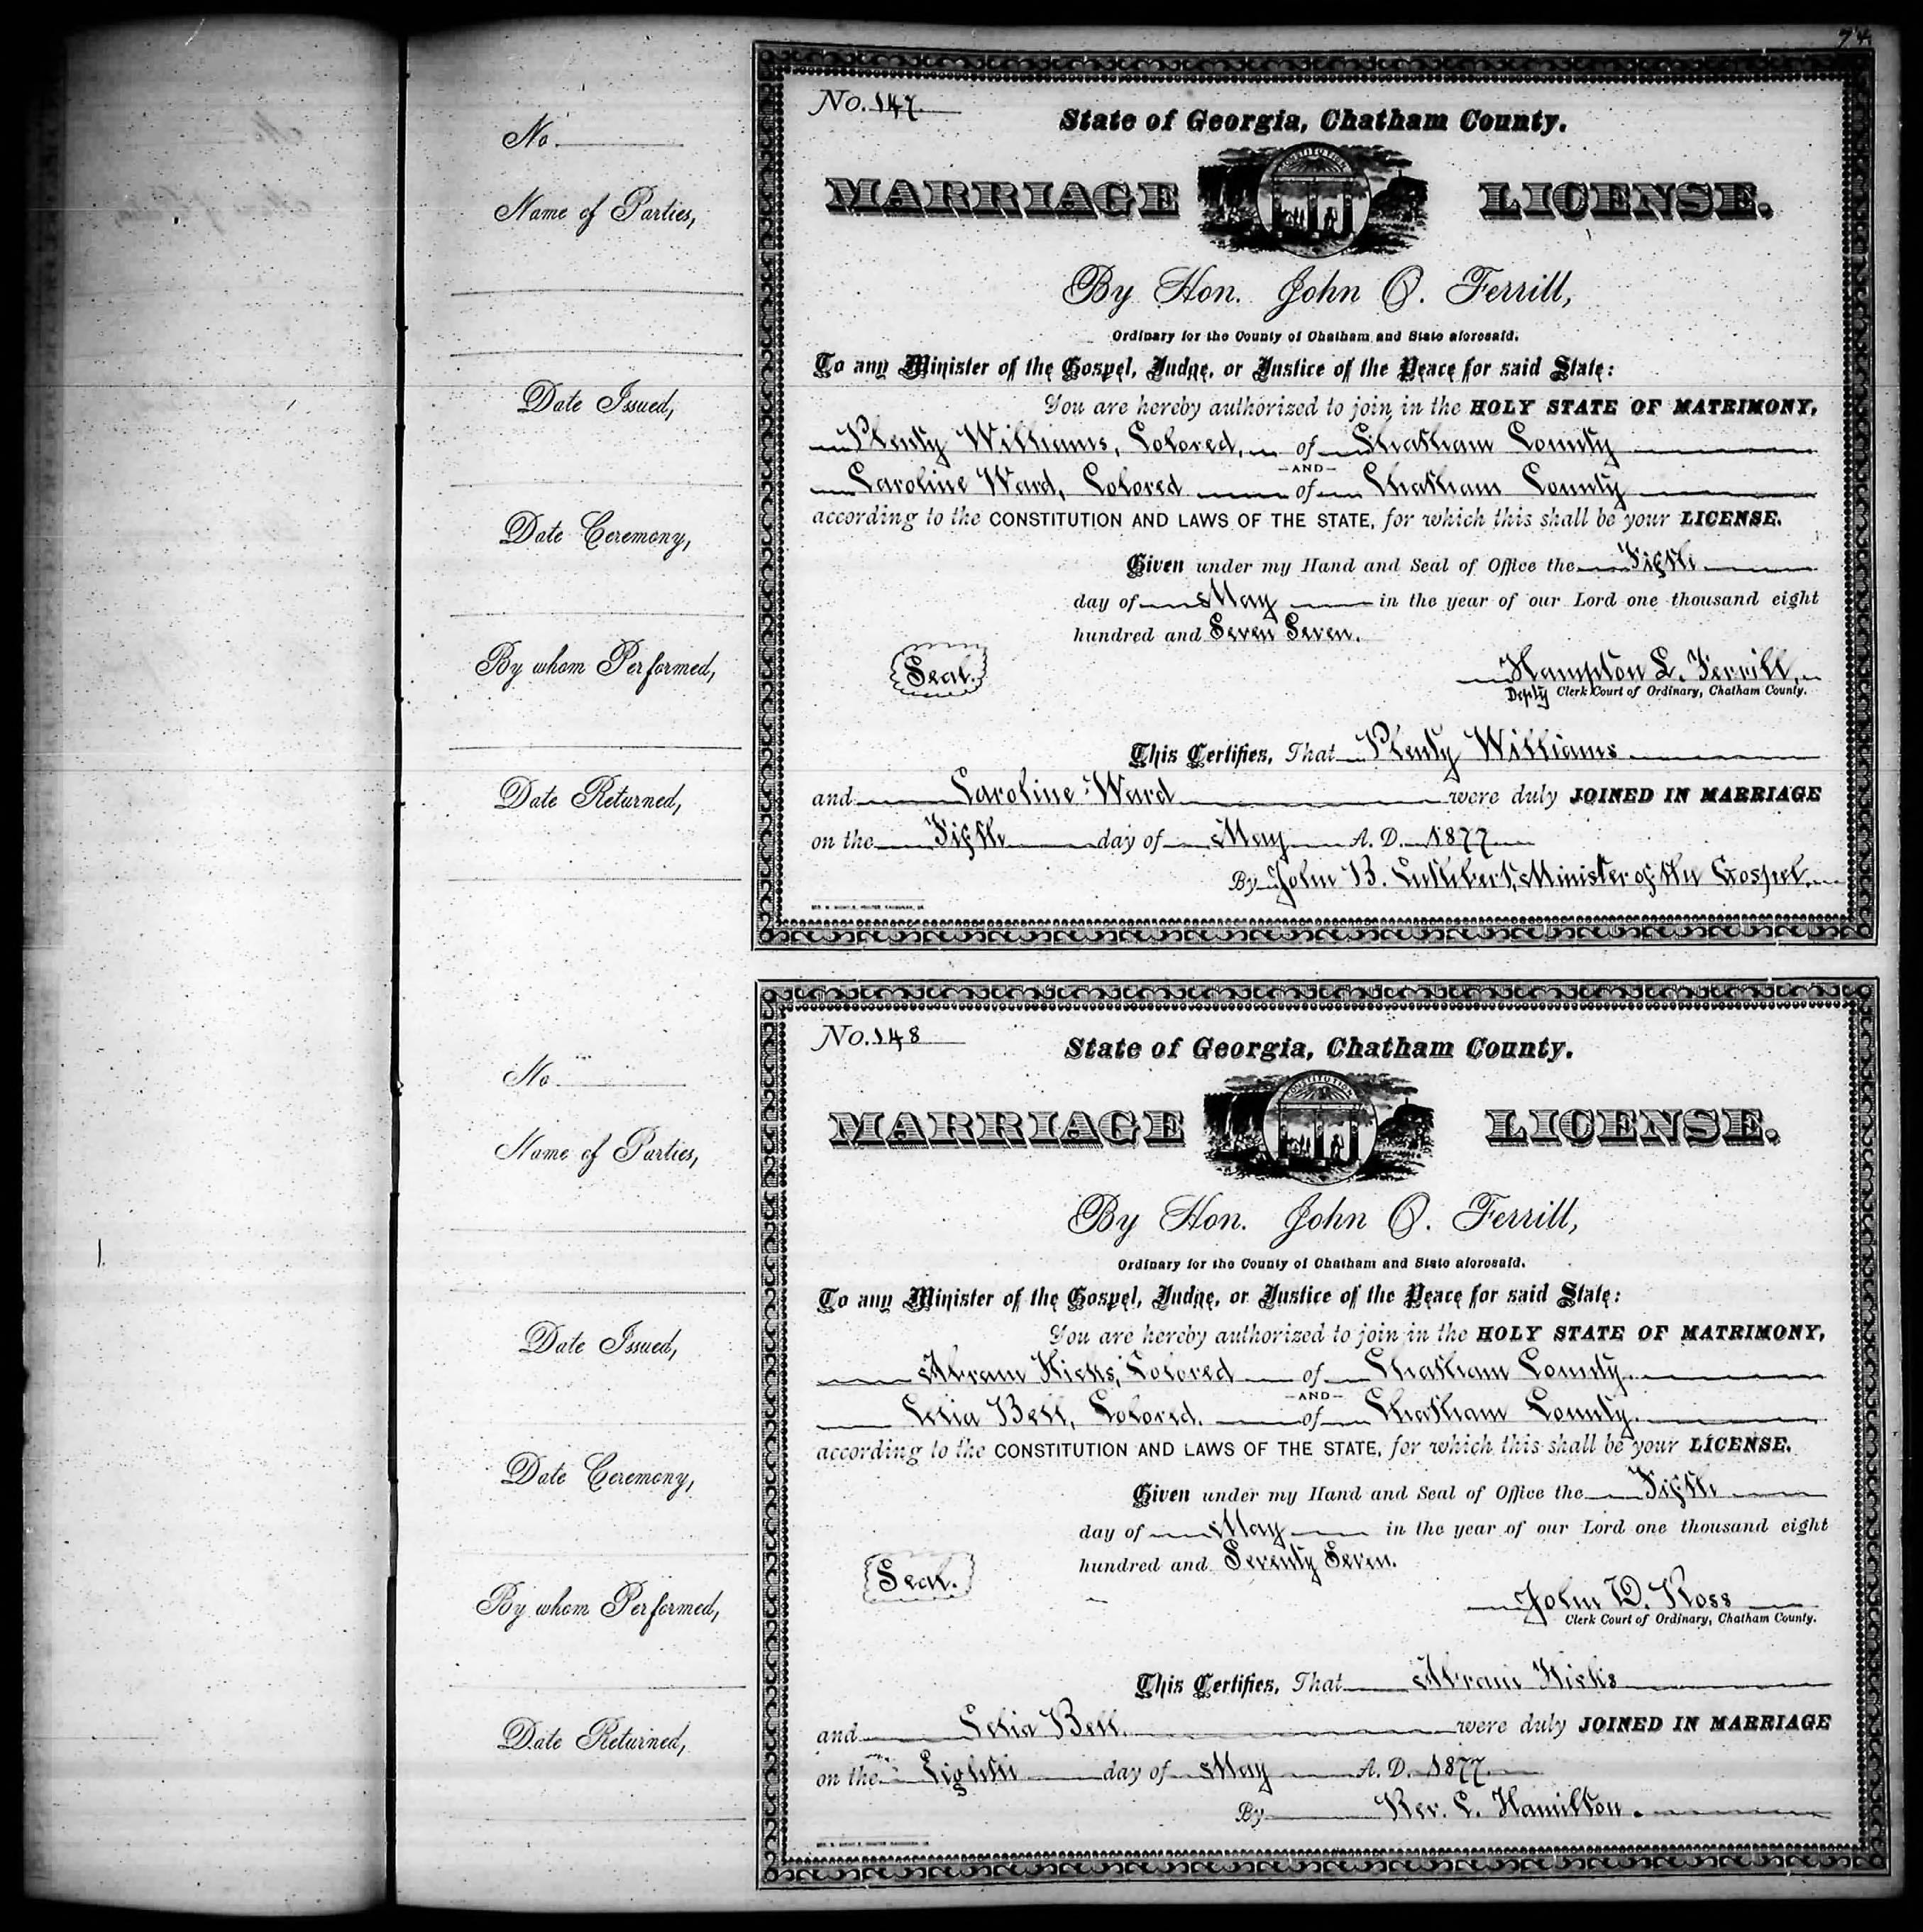 74
No.
Name of Parties,
Date Issued,
Date Ceremony,
By whom Performed,
Date Returned,
No. 147
State of Georgia, Chatham County.
MARRIAGE LICENSE.
CONSTITUTION
By Hon. John O. Ferrill,
Ordinary for the County of Chatham and State aforesaid.
To any Minister of the Gospel, Judge, or Justice of the Peace for said State:
You are hereby authorized to join in the HOLY STATE OF MATRIMONY,
Plenty Williams, Colored, of Chatham County
—AND—
Caroline Ward, Colored of Chatham County
according to the CONSTITUTION AND LAWS OF THE STATE, for which this shall be your LICENSE.
Given under my Hand and Seal of Office the Fifth
day of May in the year of our Lord one thousand eight
hundred and Seven Seven.
Seal.
Hampton L. Ferrill,
Depty Clerk Court of Ordinary, Chatham County.
This Certifies, That Plenty Williams
and Caroline Ward were duly JOINED IN MARRIAGE
on the Fifth day of May A. D. 1877
By John B. Cuthbert, Minister of the Gospel.
No.
Name of Parties,
Date Issued,
Date Ceremony,
By whom Performed,
Date Returned,
No. 148
State of Georgia, Chatham County.
MARRIAGE LICENSE.
CONSTITUTION
By Hon. John O. Ferrill,
Ordinary for the County of Chatham and State aforesaid.
To any Minister of the Gospel, Judge, or Justice of the Peace for said State:
You are hereby authorized to join in the HOLY STATE OF MATRIMONY,
Abram Hicks, Colored of Chatham County.
—AND—
Celia Bell, Colored. of Chatham County.
according to the CONSTITUTION AND LAWS OF THE STATE, for which this shall be your LICENSE.
Given under my Hand and Seal of Office the Fifth
day of May in the year of our Lord one thousand eight
hundred and Seventy Seven.
Seal.
John D. Ross
Clerk Court of Ordinary, Chatham County.
This Certifies, That Abram Hicks
and Celia Bell. were duly JOINED IN MARRIAGE
on the Eighth day of May A. D. 1877
By Rev. C. Hamilton.